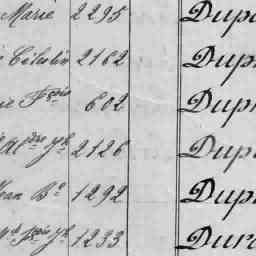 Marie 2295 Dupo
Célestin 2162 Dup
ie Fçois 602 Dup
Aldre Jh 2126 Dup
Jean Bte 1292 Dup
Fçois Jh 1233 Dura